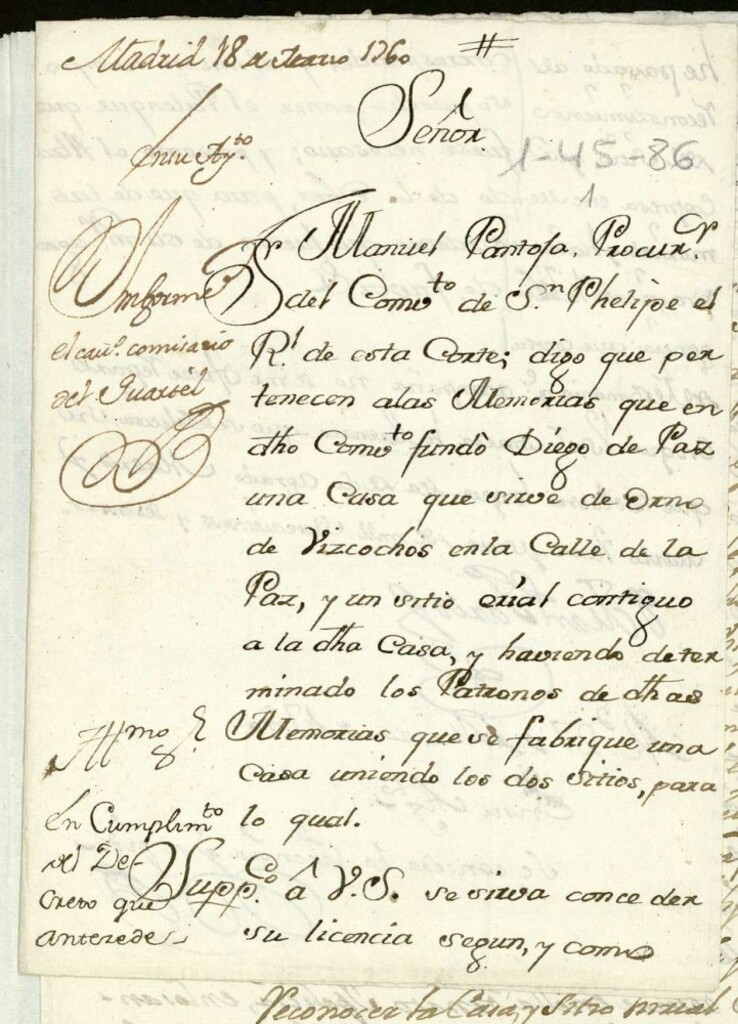 Madrid 18 de Henero 1760
Señor.
En su Ay.to
1-45-86
1
Manuel Pantoja, Procur.or
del Comv.to de S.n Phelipe el
R.l de esta Corte; digo que per
tenecen alas Memorias que en
dho Comv.to fundò Diego de Paz
una Casa que sirve de Orno
de Vizcochos en la Calle de la
Paz, y un sitio erial contiguo
a la dha Casa, y haviendo deter
minado los Patronos de dhas
Memorias que se fabrique una
Casa uniendo los dos sitios, para
lo qual.
Supp.co â V.S. se sirva conceder
su licencia segun, y como
Informe
el cavº. comisario
del Quartèl
Illmo S.r
En Cumplim.to
del De-
creto que
antezede
Reconocer la Casa, y Sitio